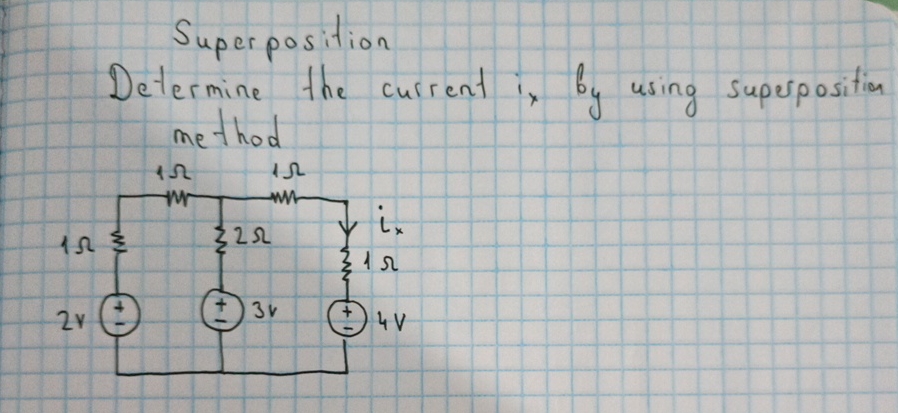 Superposition
Determine the current iₓ by using superposition
method
1Ω 1Ω
iₓ
1Ω 2Ω 1Ω
2V + - 3V + - 4V + -